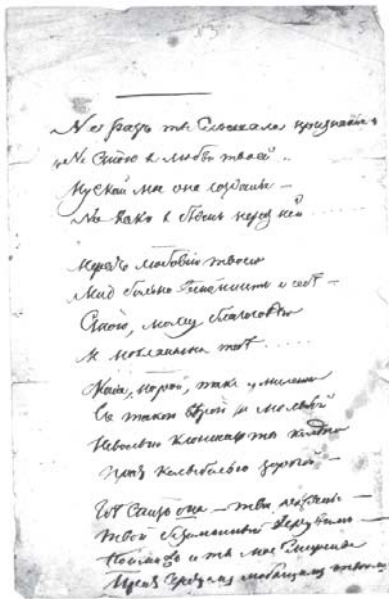 Не разъ ты слышала признанье:
„Не стою я любви твоей„.
Пускай мое она созданье –
Но какъ я бѣденъ передъ ней.....
Передъ любовію твоею
Мнѣ больно вспомнить о себѣ –
Стою, молчу, благоговѣю
И поклоняюсь тебѣ.....
Когда, порой, такъ умиленно
Съ такою вѣрой и мольбой
Невольно клонишь ты колѣно
Предъ колыбелью дорогой –
Гдѣ спитъ она – твое рожденье –
Твой безъименный Херувимъ –
Пойми жъ и ты мое смиренье
Предъ сердцемъ любящимъ твоимъ